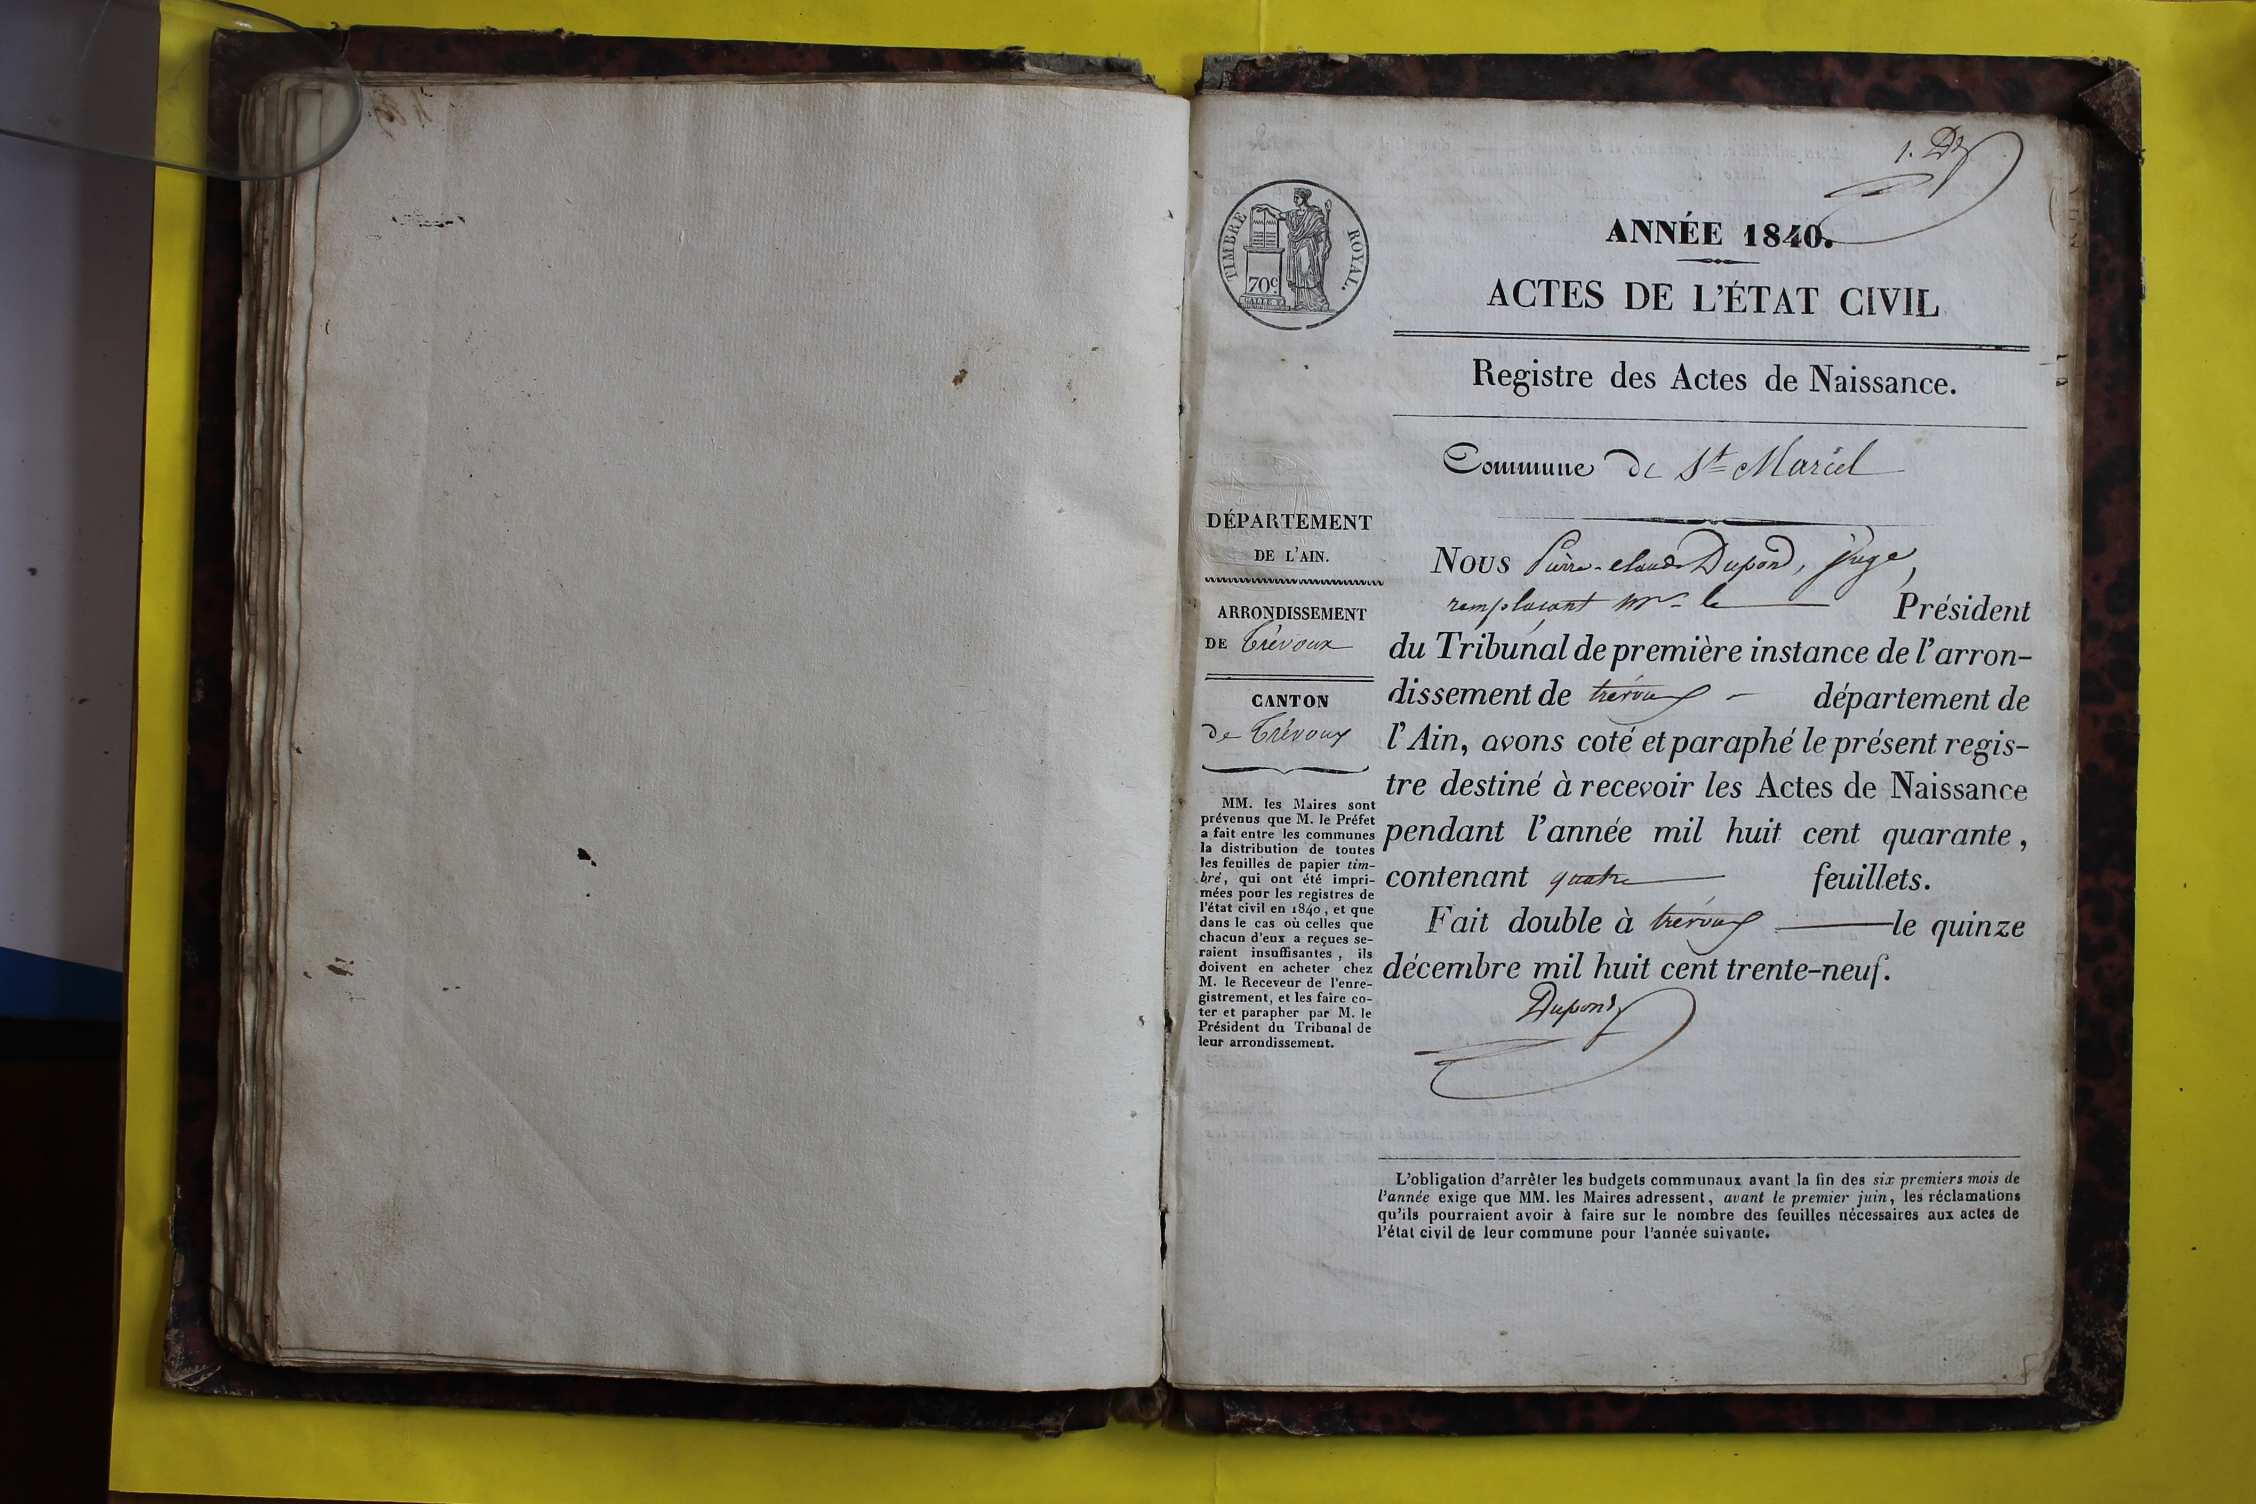 1. Dd
TIMBRE ROYAL.
70c.
ANNÉE 1840.
ACTES DE L'ÉTAT CIVIL
Registre des Actes de Naissance.
Commune de St Marcel
DÉPARTEMENT
DE L'AIN.
ARRONDISSEMENT
DE Trévoux
CANTON
de Trévoux
MM. les Maires sont
prévenus que M. le Préfet
a fait entre les communes
la distribution de toutes
les feuilles de papier tim-
bré, qui ont été impri-
mées pour les registres de
l'état civil en 1840, et que
dans le cas où celles que
chacun d'eux a reçues se-
raient insuffisantes, ils
doivent en acheter chez
M. le Receveur de l'enre-
gistrement, et les faire co-
ter et parapher par M. le
Président du Tribunal de
leur arrondissement.
Nous Pierre-claude Dupond, juge,
remplaçant mr le Président
du Tribunal de première instance de l'arron-
dissement de trévoux département de
l'Ain, avons coté et paraphé le présent regis-
tre destiné à recevoir les Actes de Naissance
pendant l'année mil huit cent quarante,
contenant quatre feuillets.
Fait double à trévoux le quinze
décembre mil huit cent trente-neuf.
Dupond
L'obligation d'arrêter les budgets communaux avant la fin des six premiers mois de
l'année exige que MM. les Maires adressent, avant le premier juin, les réclamations
qu'ils pourraient avoir à faire sur le nombre des feuilles nécessaires aux actes de
l'état civil de leur commune pour l'année suivante.